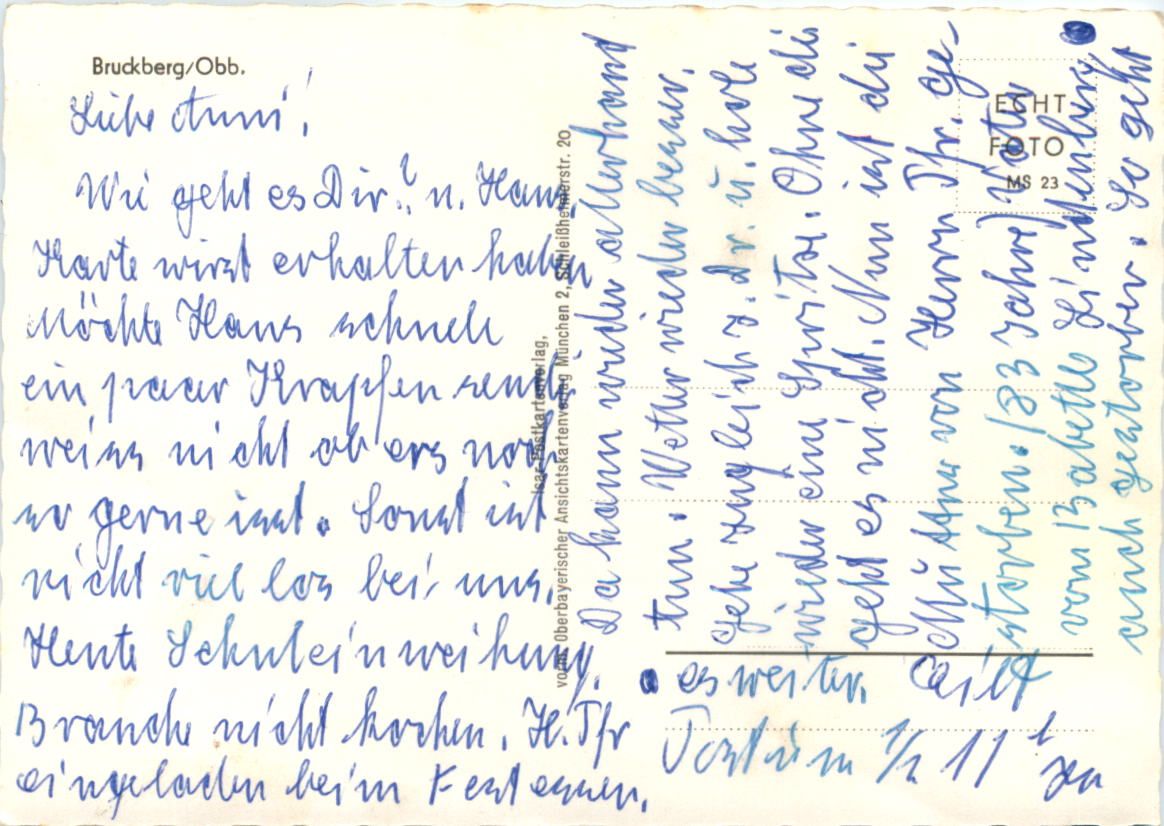 Bruckberg/Obb.
Liebe Anni!
Wie geht es Dir? u. Hans.
Karte wirst erhalten haben
Möchte Hans schnell
ein paar Krapfen send.
weiss nicht ob ers noch
so gerne isst. Sonst ist
nicht viel los bei uns.
Heute Schuleinweihung.
Brauche nicht kochen. H. Pfr
eingeladen beim Festessen.
Isar-Postkartenverlag,
vorm. Oberbayerischer Ansichtskartenverlag München 2, Schleißheimerstr. 20
Da kann wieder allerhand
tun. Wetter wieder besser.
Gehe zugleich z. Dr. u. hole
wieder eine Spritze. Ohne die
geht es nicht. Nun ist die
Mutter von Herrn Pfr. ge-
storben. (83 Jahre)
vom Babette
auch gestorben. So geht
es weiter. Eilt
Postum 1/2 11 h
ECHT
FOTO
MS 23